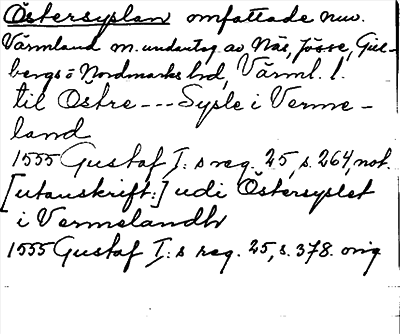 Östersyslan omfattade nuv.
Värmland m. undantag av Näs, Jösse, Gill-
bergs o Nordmarks hd, Värml. l.
til Östre --- Sysle i Verme-
land
1555 Gustaf I:s reg. 25, s. 264, not.
[utanskrift:] udi Östersyslet
i Vermelandh
1555 Gustaf I:s reg. 25, s. 378. orig